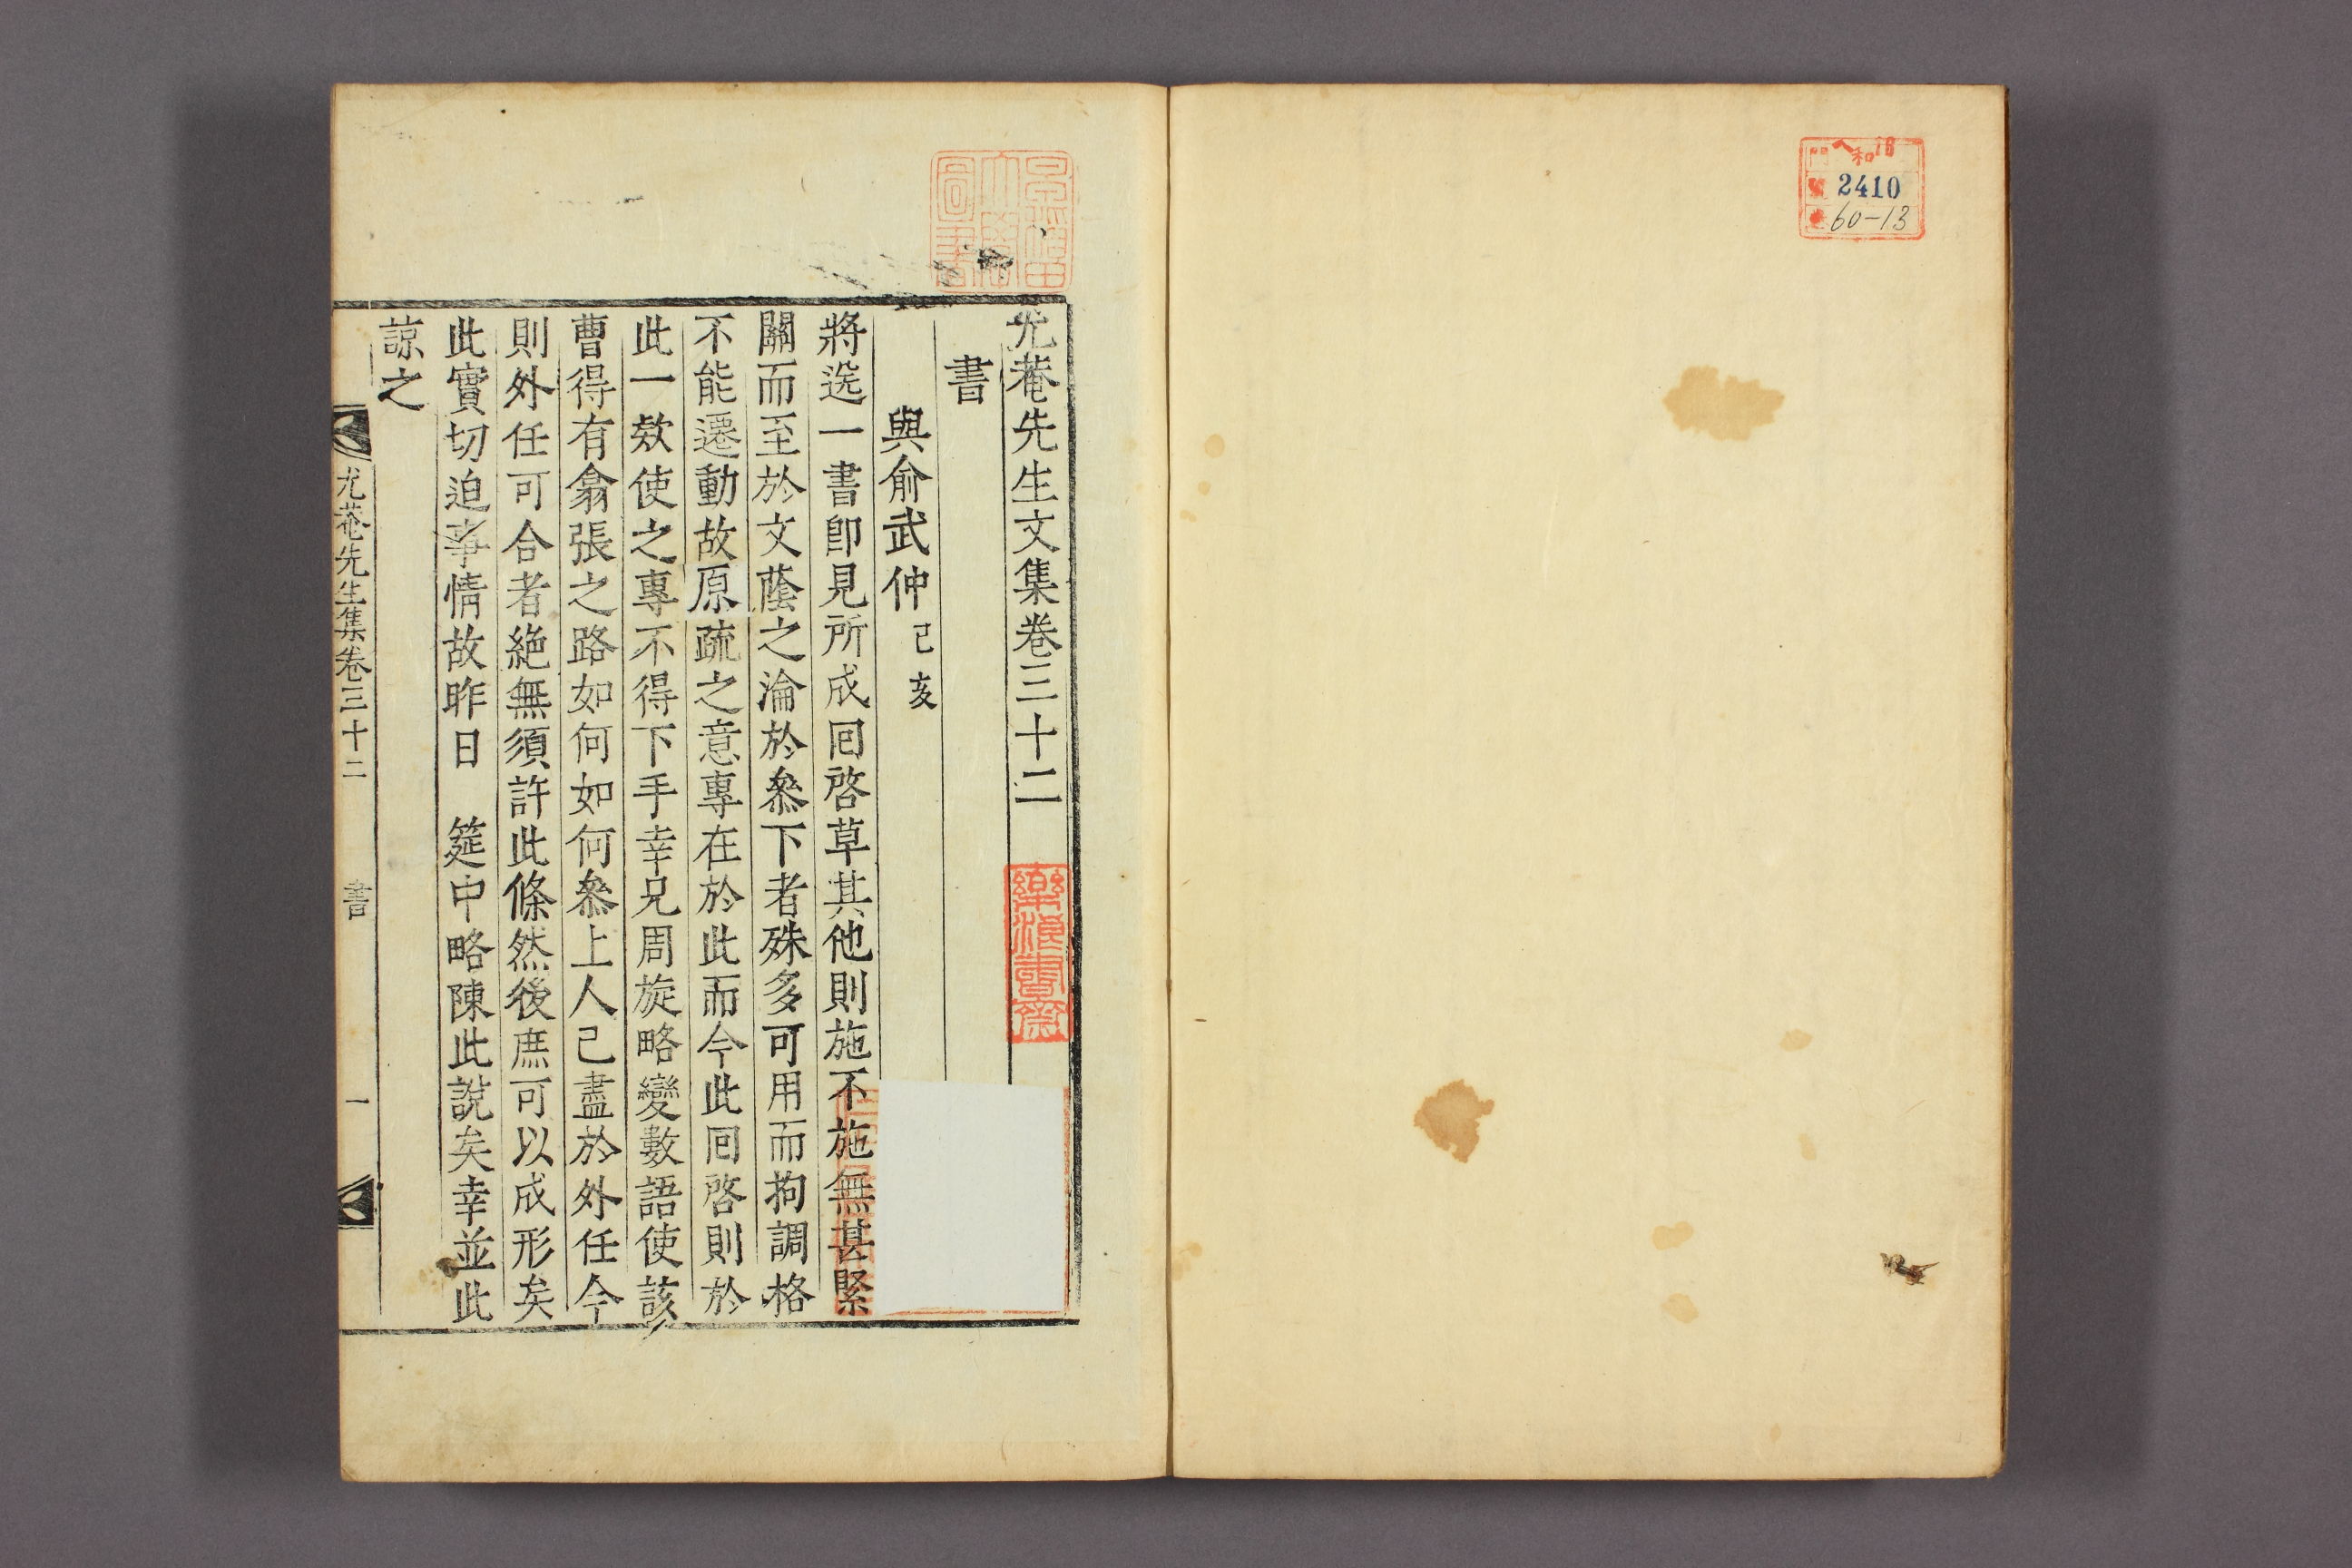 和 16
2410
60-13
早稲田
大學
圖書
尤菴先生文集卷三十二
樂浪書齋
書
與俞武仲 己亥
將迯一書卽見所成回啓草其他則施不施無甚緊
關而至於文蔭之淪於叅下者殊多可用而拘調格
不能遷動故原疏之意專在於此而今此回啓則於
此一欵使之專不得下手幸兄周旋略變數語使該
曹得有翕張之路如何如何叅上人已盡於外任今
則外任可合者絶無須許此條然後庶可以成形矣
此實切迫事情故昨日 筵中略陳此說矣幸並此
諒之
尤菴先生集卷三十二 書 一